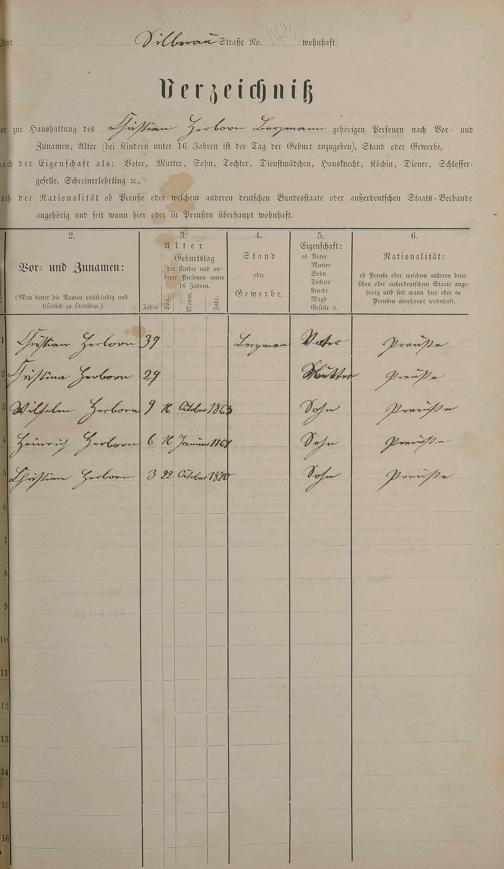 Silberau Straße No. wohnhaft.
Verzeichniß
der zur Haushaltung des Christian Herborn Bergmann gehörigen Personen nach Vor- und
Zunamen, Alter (bei Kindern unter 16 Jahren ist der Tag der Geburt anzugeben), Stand oder Gewerbe,
nach der Eigenschaft als: Vater, Mutter, Sohn, Tochter, Dienstmädchen, Hausknecht, Köchin, Diener, Schlosser-
geselle, Schreinerlehrling ꝛc.,
nach der Nationalität ob Preuße oder welchem anderen deutschen Bundesstaate oder außerdeutschen Staats-Verbande
angehörig und seit wann hier oder in Preußen überhaupt wohnhaft.
2. 3. 4. 5. 6.
Vor- und Zunamen:
(Man bittet die Namen vollständig und leserlich zu schreiben.)
Alter
Geburtstag
der Kinder und anderer Personen unter 16 Jahren.
Jahre. Tag. Monat. Jahr.
Stand
oder
Gewerbe.
Eigenschaft:
ob Vater
Mutter
Sohn
Tochter
Knecht
Magd
Geselle ꝛc.
Nationalität:
ob Preuße oder welchem anderen deut-
schen oder außerdeutschen Staate ange-
hörig und seit wann hier oder in
Preußen überhaupt wohnhaft.
1 Christian Herborn 39 Bergman Vater Preuße
2 Christina Herborn 29 Mutter Preuße
3 Wilhelm Herborn 9 16 October Sohn Preuße
4 Heinrich Herborn 6 16 Januar Sohn Preuße
5 Christian Herborn 3 22 October Sohn Preuße
7
8
9
10
11
12
13
14
15
16